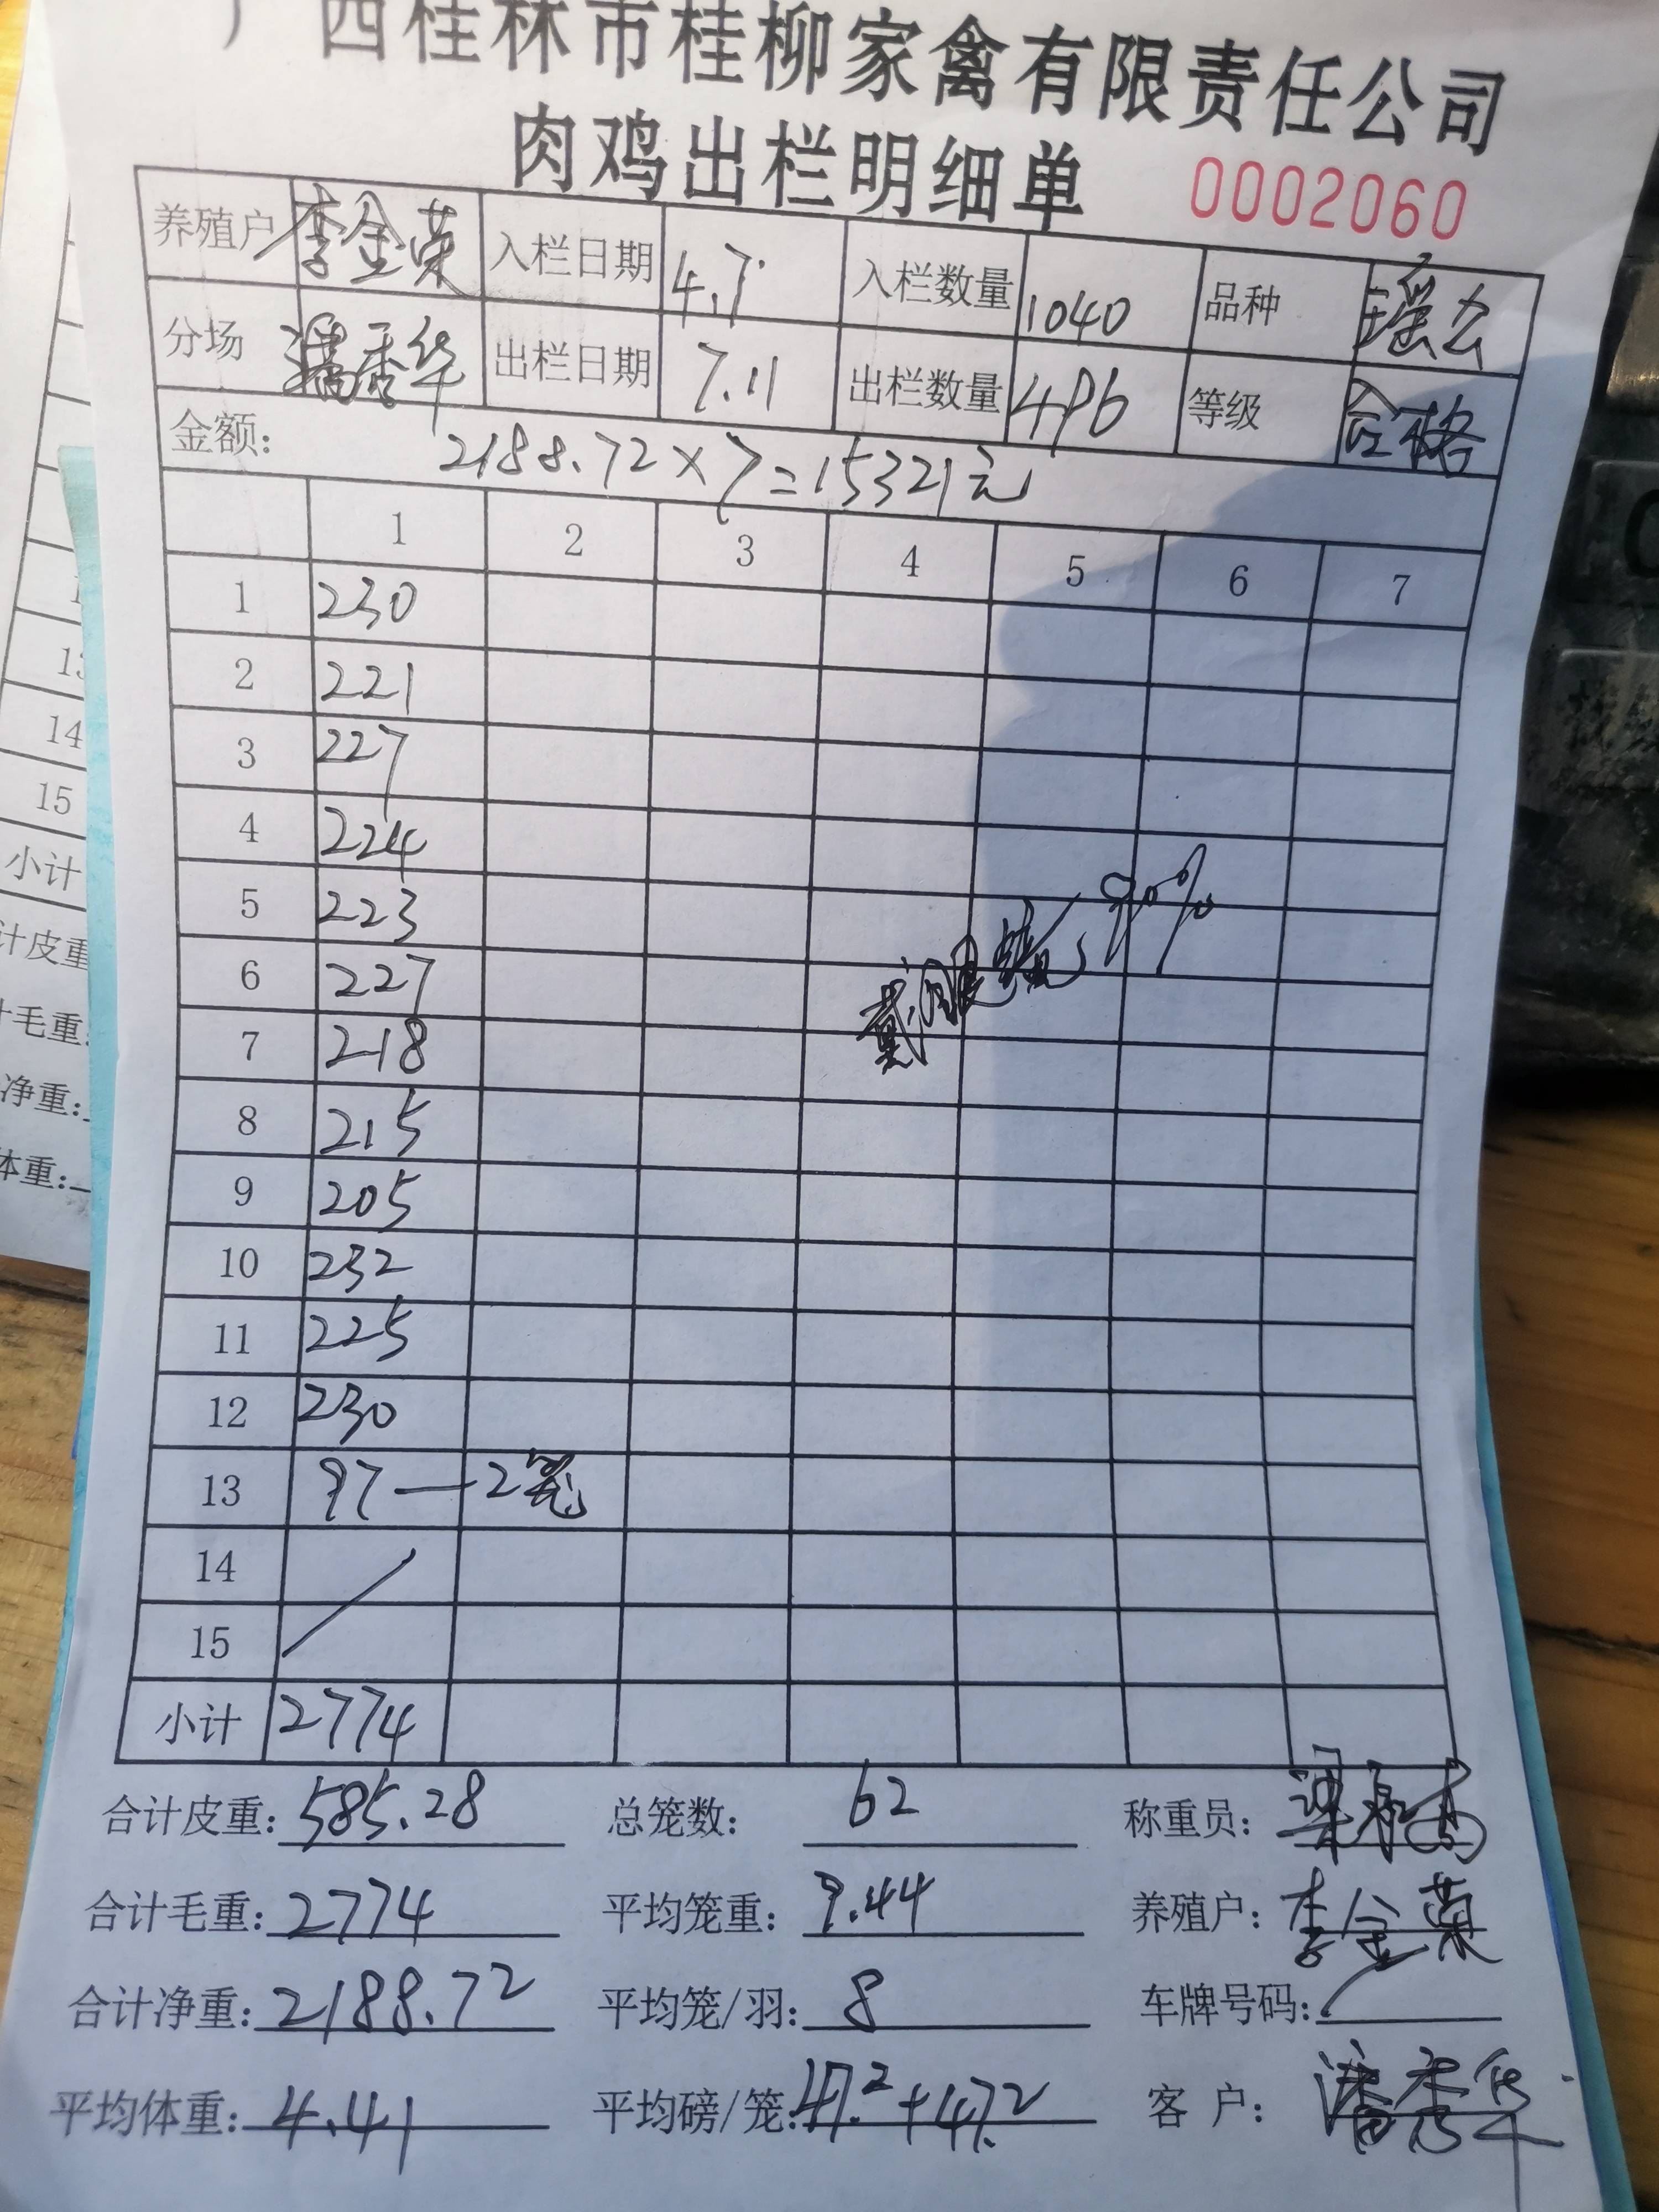 广西桂林市桂柳家禽有限责任公司
肉鸡出栏明细单 0002060
养殖户 李金荣 入栏日期 4.7 入栏数量 1040 品种 瑶公
分场 潘秀华 出栏日期 7.11 出栏数量 496 等级 合格
金额: 2188.72×7=15321元
1 2 3 4 5 6 7
1 230
2 221
3 227
4 224
5 223
戴眼镜 90%
6 227
7 218
8 215
9 205
10 232
11 225
12 230
13 97—2笼
14
15
小计 2774
合计皮重: 585.28 总笼数: 62 称重员: 梁
合计毛重: 2774 平均笼重: 9.44 养殖户: 李金荣
合计净重: 2188.72 平均笼/羽: 8 车牌号码:
平均体重: 4.41 平均磅/笼: 47.2+47.2 客 户: 潘秀华
13
14
15
小计
计皮重
计毛重:
净重:
体重: